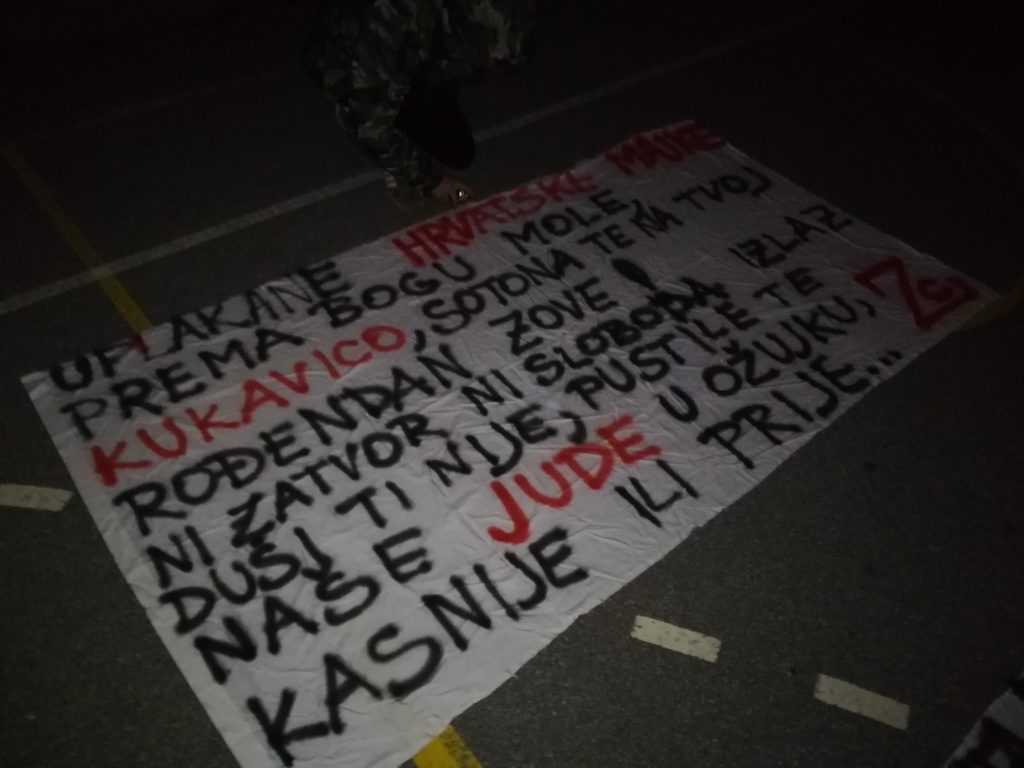 UPLAKANE HRVATSKE MAJKE
PREMA BOGU MOLE,
KUKAVICO, SOTONA TE NA TVOJ
ROĐENDAN ZOVE!
NI ZATVOR NI SLOBODA IZLAZ
DUŠI TI NIJE, PUSTILE TE
NAŠE JUDE U OŽUJKU,
KASNIJE ILI PRIJE...